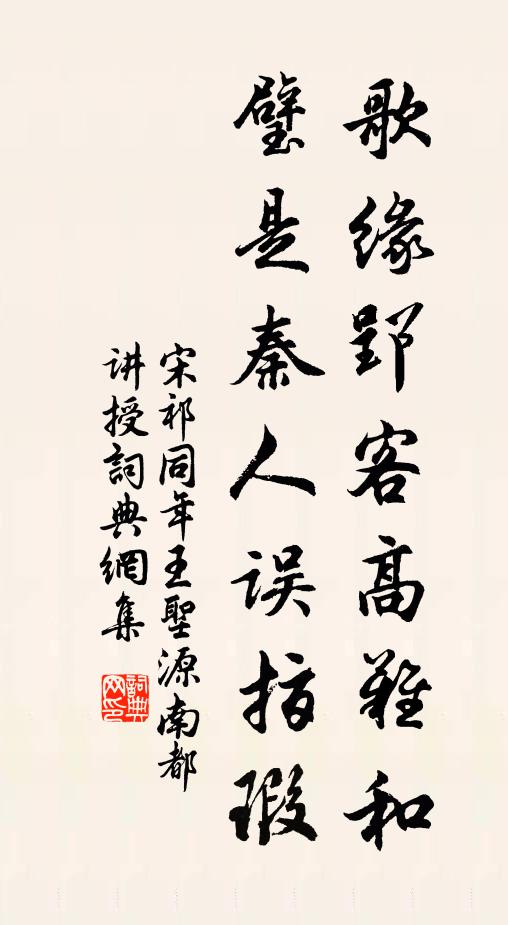 歌缘郢客高难和
璧是秦人误指瑕
宋祁同年王聖源南都
讲授詞典網集
詞典
网印